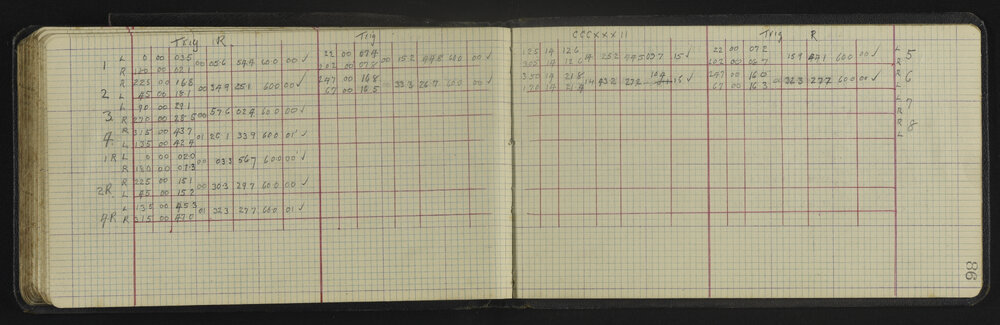 Trig R.
Trig
CCCXXXII
Trig R
1 L 0 00 035
R 180 00 021 00 056 544 600 00 ✓
2 R 225 00 168
L 45 00 181 00 349 251 600 00 ✓
3. L 90 00 291
R 270 00 285 00 576 024 600 00 ✓
4. R 315 00 437
L 135 00 424 01 261 339 600 01 ✓
1R L 0 00 020
R 180 00 013 00 033 567 600 00 ✓
2R R 225 00 151
L 45 00 152 00 303 297 600 00 ✓
4R L 135 00 453
R 315 00 470 01 323 277 600 01 ✓
22 00 074
202 00 078 00 152 448 600 00 ✓
247 00 168
67 00 165 00 333 267 600 00 ✓
125 14 126
305 14 126 14 252 445 15 ✓
350 14 218
170 14 214 14 432 272 15 ✓
22 00 072
202 00 067 139 461 600 00 ✓
247 00 160
67 00 163 00 323 277 600 00 ✓
L 5
R
R 6
L
L 7
R
R 8
L
86